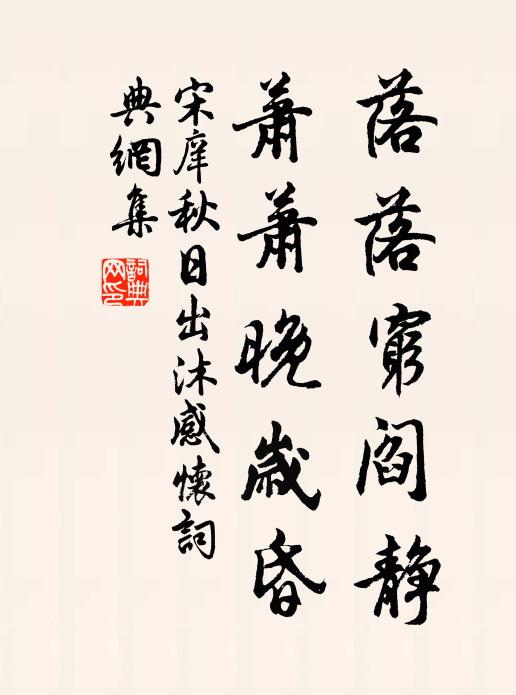 落落窮閻静
蕭蕭晚歲昏
宋庠秋日出沐感懷詞
典網集
詞典
网印